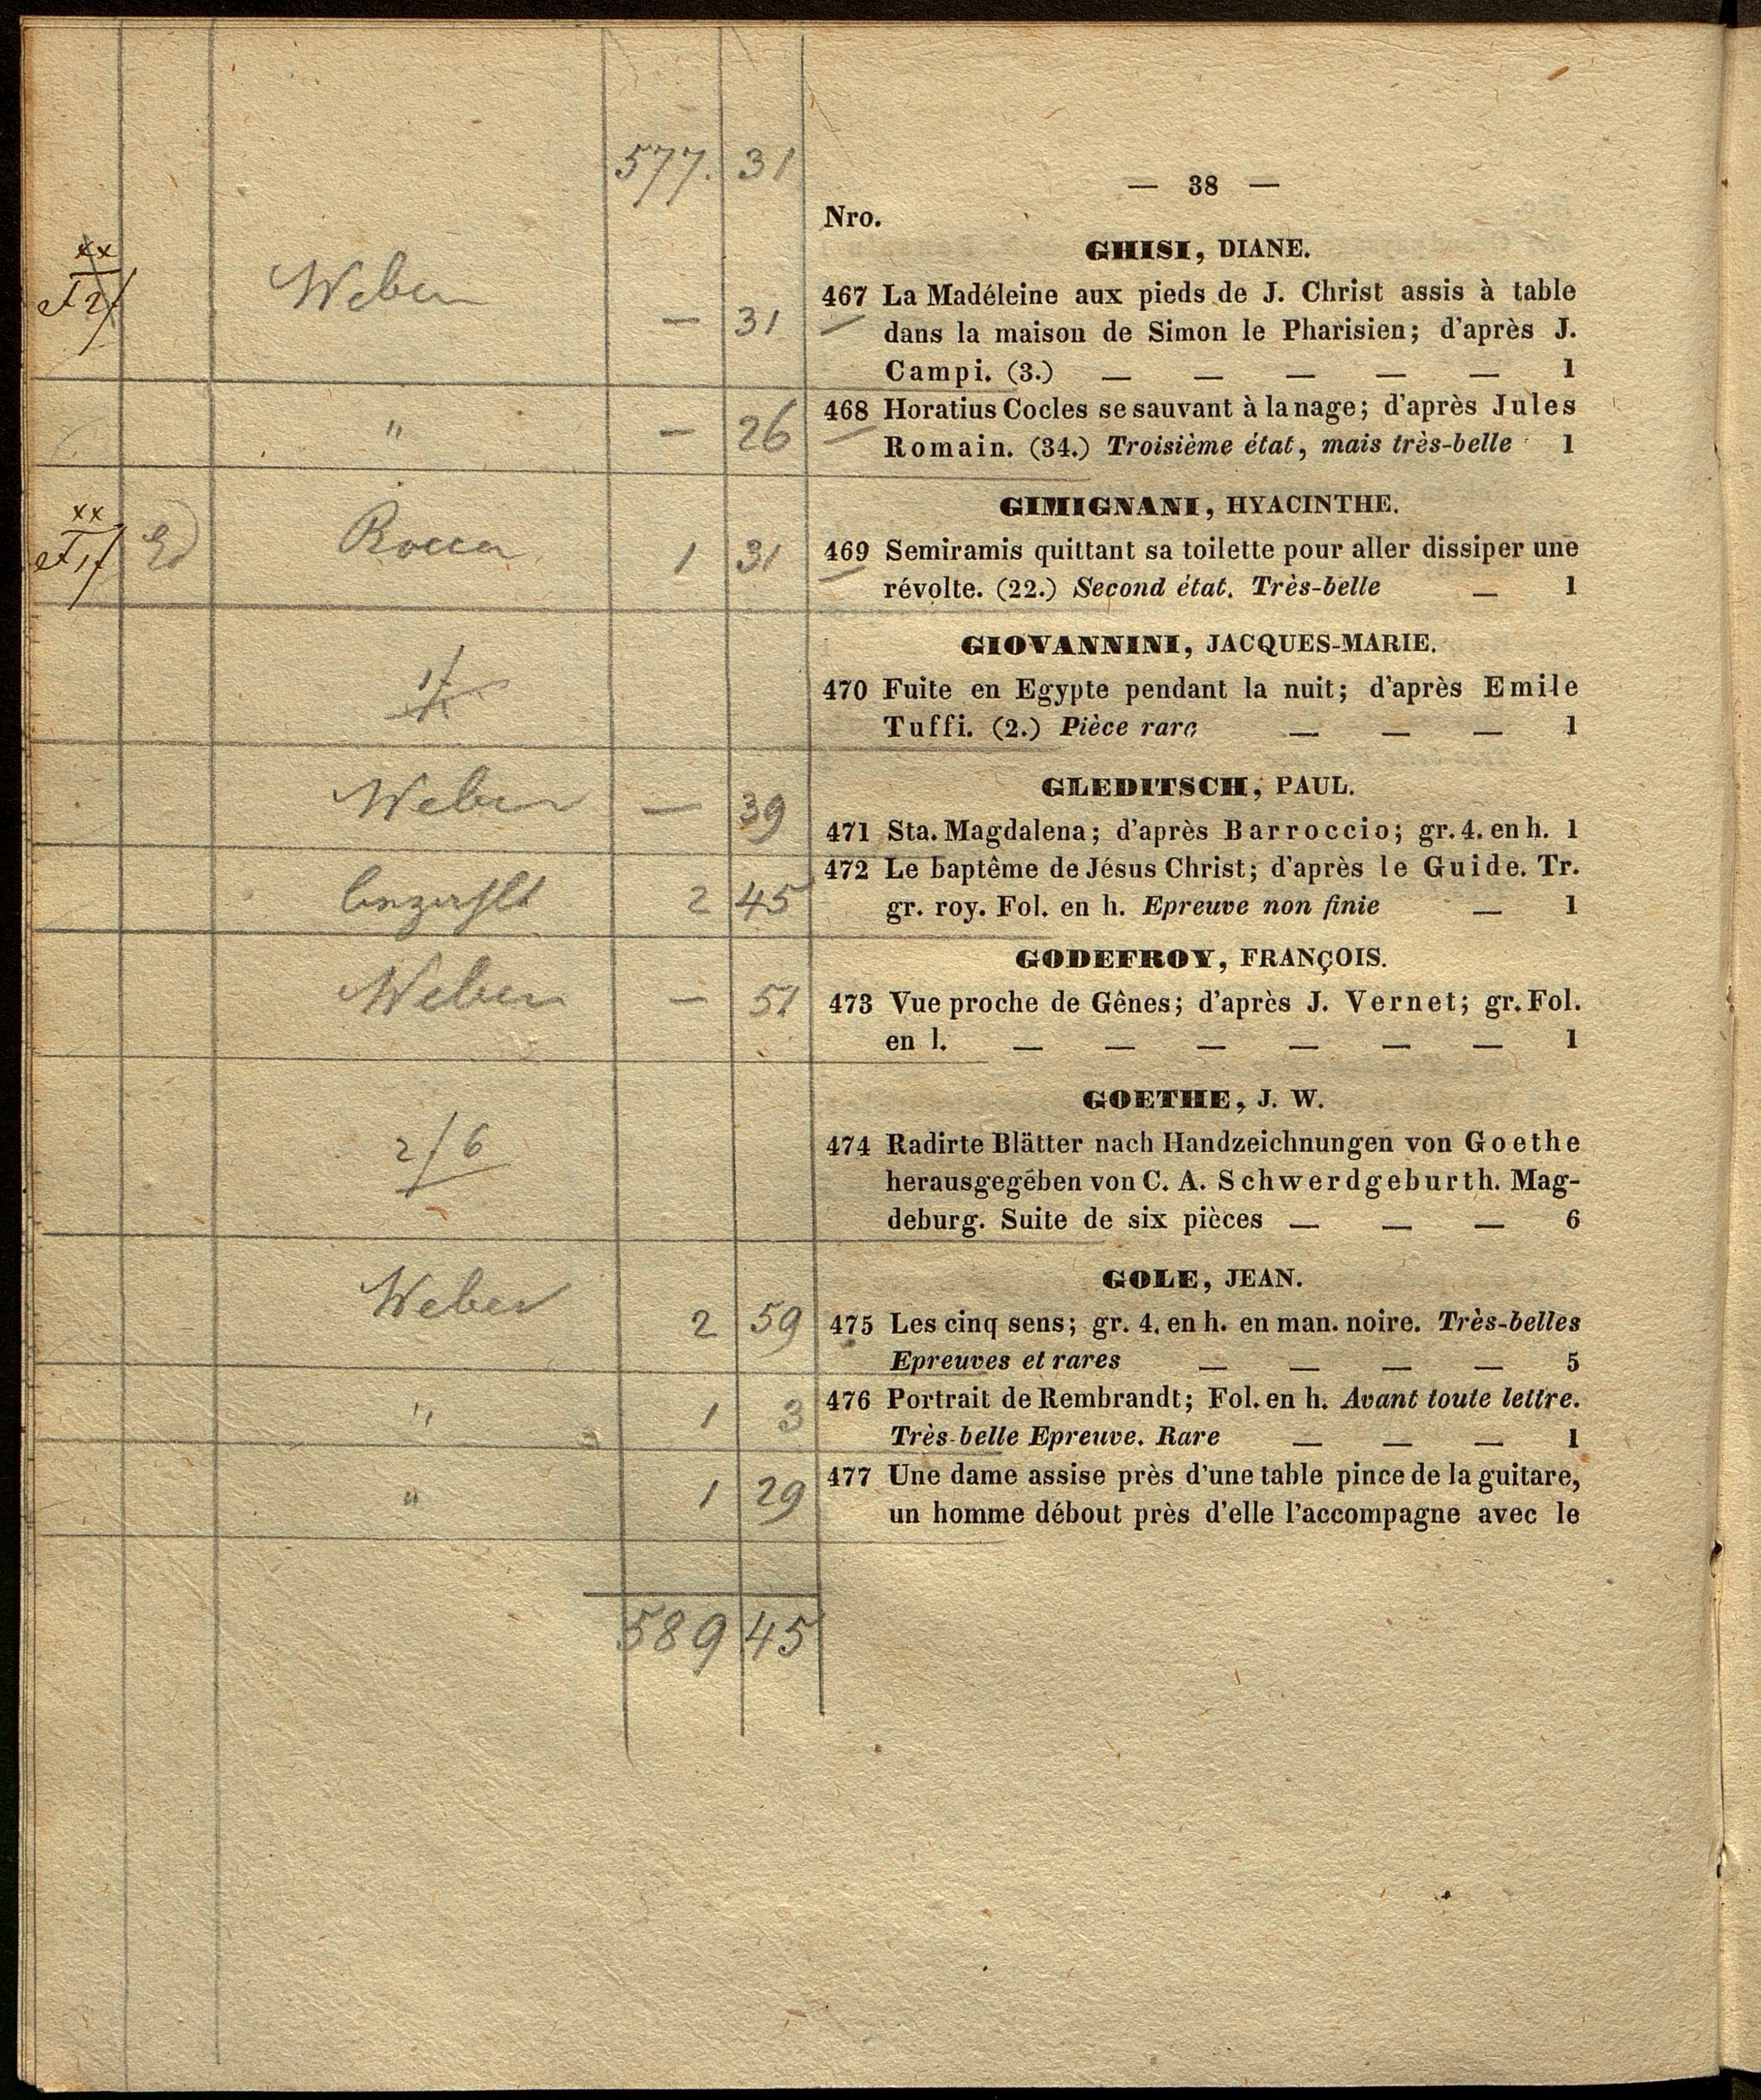 577. 31
— 38 —
Nro.
GHISI, DIANE.
Weber — 31
467 La Madéleine aux pieds de J. Christ assis à table
dans la maison de Simon le Pharisien; d'après J.
Campi. (3.) — — — — — 1
" — 26
468 Horatius Cocles se sauvant à la nage; d'après Jules
Romain. (34.) Troisième état, mais très-belle 1
GIMIGNANI, HYACINTHE.
Rocca 1 31
469 Semiramis quittant sa toilette pour aller dissiper une
révolte. (22.) Second état. Très-belle — 1
GIOVANNINI, JACQUES-MARIE.
470 Fuite en Egypte pendant la nuit; d'après Emile
Tuffi. (2.) Pièce rare — — — 1
GLEDITSCH, PAUL.
Weber — 39
471 Sta. Magdalena; d'après Barroccio; gr. 4. en h. 1
2 45
472 Le baptême de Jésus Christ; d'après le Guide. Tr.
gr. roy. Fol. en h. Epreuve non finie — 1
GODEFROY, FRANÇOIS.
Weber — 51
473 Vue proche de Gênes; d'après J. Vernet; gr. Fol.
en l. — — — — — — 1
GOETHE, J. W.
2/6
474 Radirte Blätter nach Handzeichnungen von Goethe
herausgegében von C. A. Schwerdgeburth. Mag-
deburg. Suite de six pièces — — — 6
GOLE, JEAN.
Weber 2 59
475 Les cinq sens; gr. 4. en h. en man. noire. Très-belles
Epreuves et rares — — — — 5
" 1 3
476 Portrait de Rembrandt; Fol. en h. Avant toute lettre.
Très-belle Epreuve. Rare — — — 1
" 1 29
477 Une dame assise près d'une table pince de la guitare,
un homme débout près d'elle l'accompagne avec le
589 45